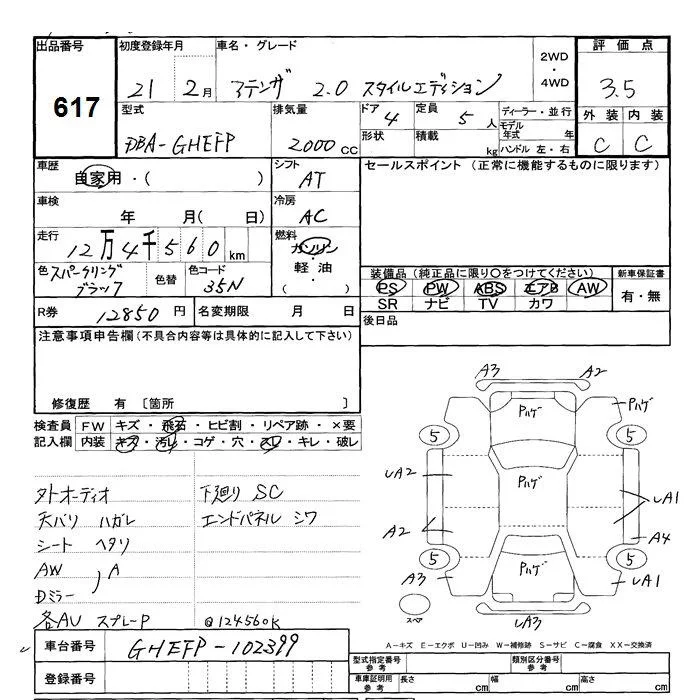 出品番号 初度登録年月 車名・グレード 2WD・4WD 評価点
617 21 2月 アテンザ 2.0 スタイルエディション 3.5
型式 排気量 ドア 4 定員 5人 ディーラー・並行 外装 内装
DBA-GHEFP 2000cc 形状 積載 kg モデル年式 年 C C
ハンドル 左・右
車歴 自家用・( ) シフト AT セールスポイント (正常に機能するものに限ります)
車検 年 月( 日) 冷房 AC
走行 12万4千560km 燃料 ガソリン・軽油・( )
色 スパークリングブラック 色替 色コード 35N
装備品 (純正品に限り○をつけてください) 新車保証書
PS PW ABS エアB AW 有・無
SR ナビ TV カワ
R券 12850円 名変期限 月 日 後日品
注意事項申告欄(不具合内容等は具体的に記入して下さい)
修復歴 有 〔箇所 〕
検査員 FW キズ・飛石・ヒビ割・リペア跡・×要
記入欄 内装 キズ・汚レ・コゲ・穴・スレ・キレ・破レ
外オーディオ 下廻り SC
天バリ ハガレ エンドパネル シワ
シート ヘタリ
AW
Dミラー ) A
各AU スプレーP @124560K
A3 A2
Pハゲ Pハゲ
5 5
UA2 Pハゲ UA1
A2 A4
5 5
A3 Pハゲ UA1
スペア UA3
A-キズ E-エクボ U-凹み W-補修跡 S-サビ C-腐食 XX-交換済
車台番号 GHEFP-102399
登録番号
型式指定番号 参考 類別区分番号 参考
車庫証明用 参考 長さ cm 幅 cm 高さ cm